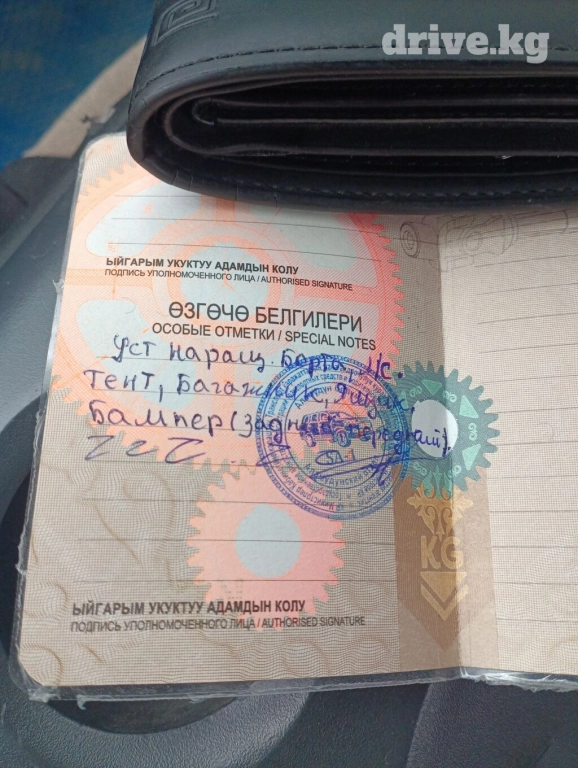 drive.kg
ЫЙГАРЫМ УКУКТУУ АДАМДЫН КОЛУ
ПОДПИСЬ УПОЛНОМОЧЕННОГО ЛИЦА / AUTHORISED SIGNATURE
ӨЗГӨЧӨ БЕЛГИЛЕРИ
ОСОБЫЕ ОТМЕТКИ / SPECIAL NOTES
Уст наращ. Борта,
Тент, Багажник, Ящик,
Бампер (задний передний).
KG
ЫЙГАРЫМ УКУКТУУ АДАМДЫН КОЛУ
ПОДПИСЬ УПОЛНОМОЧЕННОГО ЛИЦА / AUTHORISED SIGNATURE